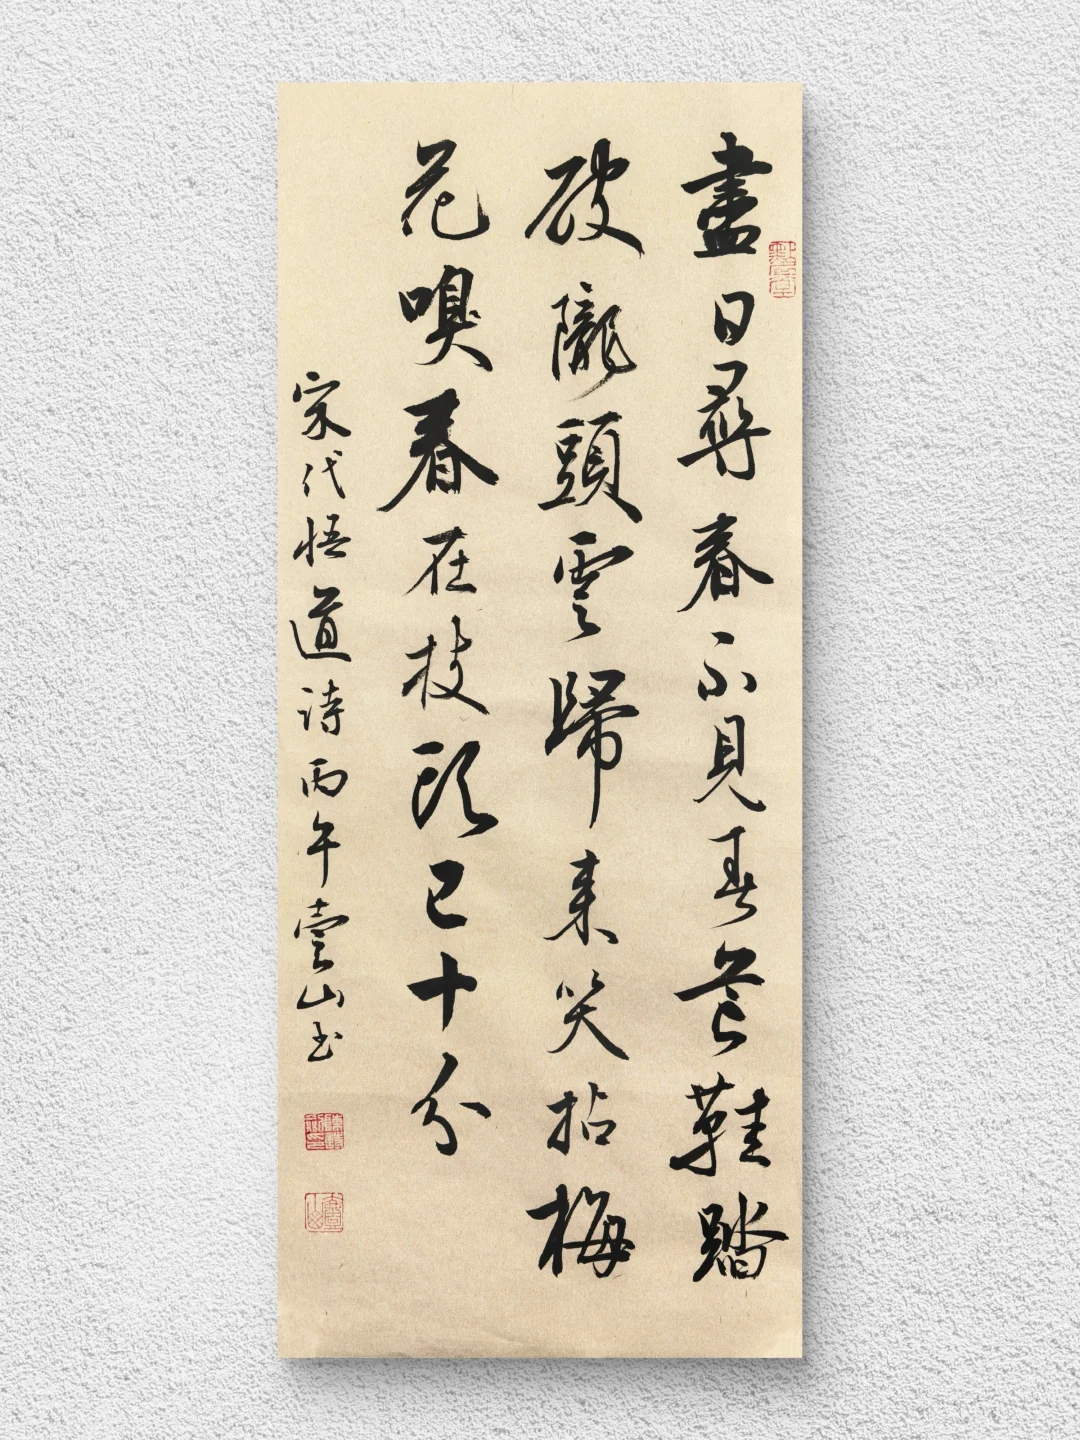 盡日尋春不見春芒鞋踏
破隴頭雲歸来笑拈梅
花嗅春在枝頭已十分
宋代悟道诗丙午壹山书